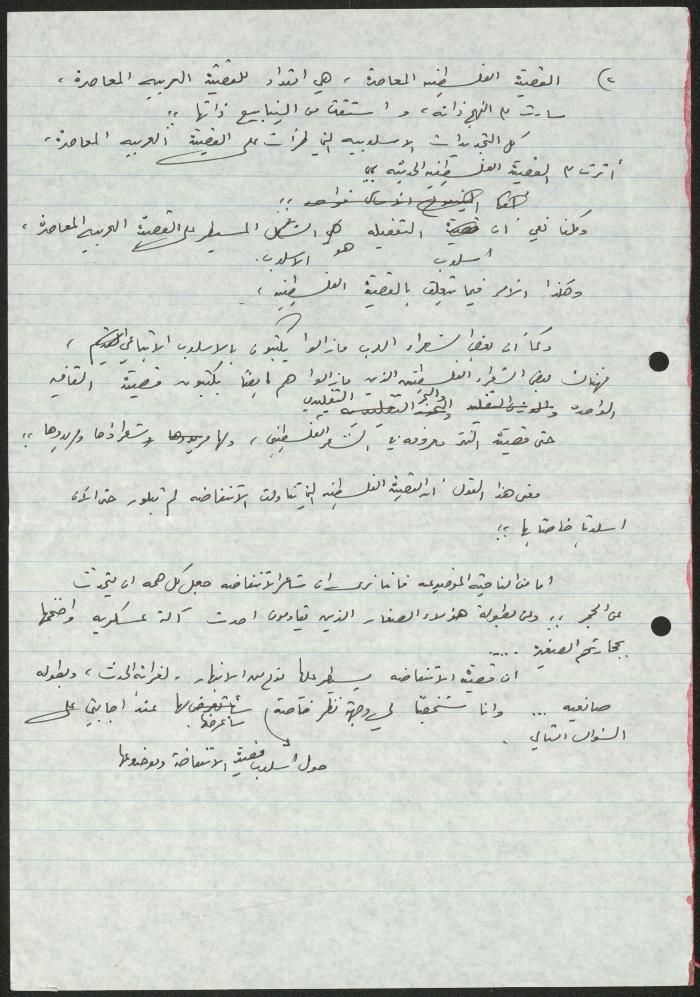 ٢) القصيدة الفلسطينيه المعاصرة ، هي امتداد للقصيدة العربيه المعاصرة ،
سارت في النهج ذاته، و استقت من الينابيع ذاتها ؛؛
كل التجديدات الاسلوبيه التي طرأت على القصيدة العربيه المعاصرة،
أثرت في القصيدة الفلسطينيه الحديثه ؛؛
وكلنا نعي ان قصيدة التفعيله هي الشكل المسيطر على القصيدة العربيه المعاصرة ،
اسلوب هو الاسلوب.
وهكذا الامر فيما يتعلق بالقصيدة الفلسطينيه ،
وكما ان بعض الشعراء العرب ما زالوا يكتبون بالاسلوب الاتباعي القديم ،
فهناك بعض الشعراء الفلسطينيين الذين ما زالوا هم ايضا يكتبون قصيدة القافيه
الواحدة والبحر التقليدي
حتى قصيدة النثر معروفه في الشعر الفلسطيني ، ولها شعراؤها ومريدوها ؛؛
معنى هذا القول أن القصيدة الفلسطينيه التي تناولت الانتفاضه لم تبلور حتى الآن
اسلوبا خاصا بها ؛؛
اما من الناحية الموضوعيه فاننا نرى ان شاعر الانتفاضه جعل كل همه ان يتحدث
عن الحجر ؛؛ وعن بطولة هؤلاء الصغار الذين يقاومون احدث آلة عسكريه واضخمها
بحجارتهم الصغيرة .....
ان قصيدة الانتفاضه يسيطر عليها نوع من الانبهار ، لغرابة الحدث ، وبطوله
صانعيه ... وانا شخصيا لي وجهة نظر خاصة سأعرضها عند اجابتي على
السؤال التالي .
حول اسلوب قصيدة الانتفاضة وموضوعها